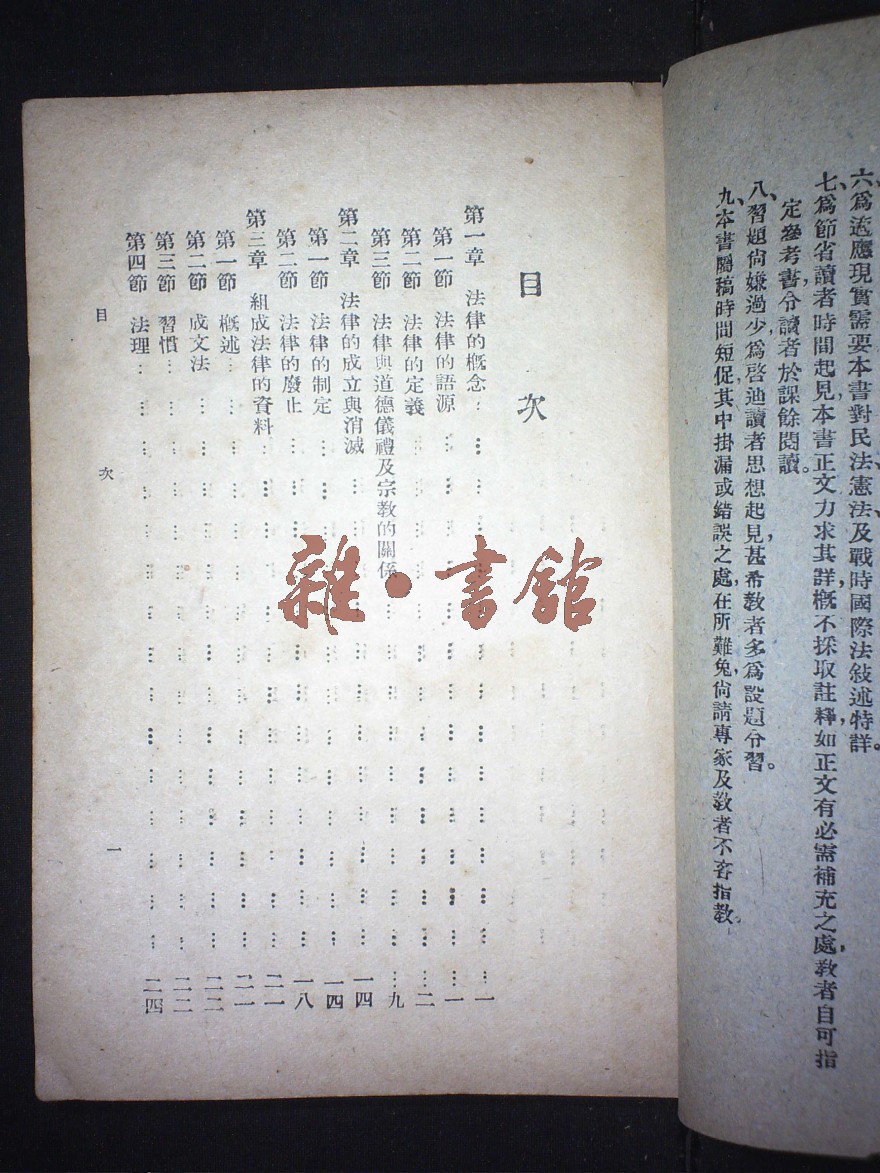 六、爲適應現實需要本書對民法、憲法、及戰時國際法敍述特詳。
七、爲節省讀者時間起見,本書正文力求其詳,概不採取註釋、如正文有必需補充之處,敎者自可指
定參考書,令讀者於課餘閱讀。
八、習題尙嫌過少,爲啓迪讀者思想起見,甚希敎者多爲設題分習。
九、本書屬稿時間短促,其中掛漏或錯誤之處,在所難免,尙請專家及敎者不吝指敎。
目次
第一章 法律的概念…一
第一節 法律的語源…一
第二節 法律的定義…二
第三節 法律與道德儀禮及宗敎的關係…九
第二章 法律的成立與消滅…一四
第一節 法律的制定…一四
第二節 法律的廢止…一八
第三章 組成法律的資料…二一
第一節 概述…二一
第二節 成文法…二二
第三節 習慣…二二
第四節 法理…二四
目次 一
雜·書館